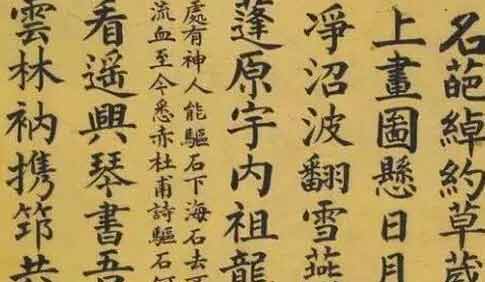 名葩綽約草葳
上畫圖懸日月
凈沼波翻雪燕
蓬原宇内祖龍
處有神人能驅石下海石去
流血至今悉赤杜甫詩驅石
看遥興琴書吾
雲林衲携筇共